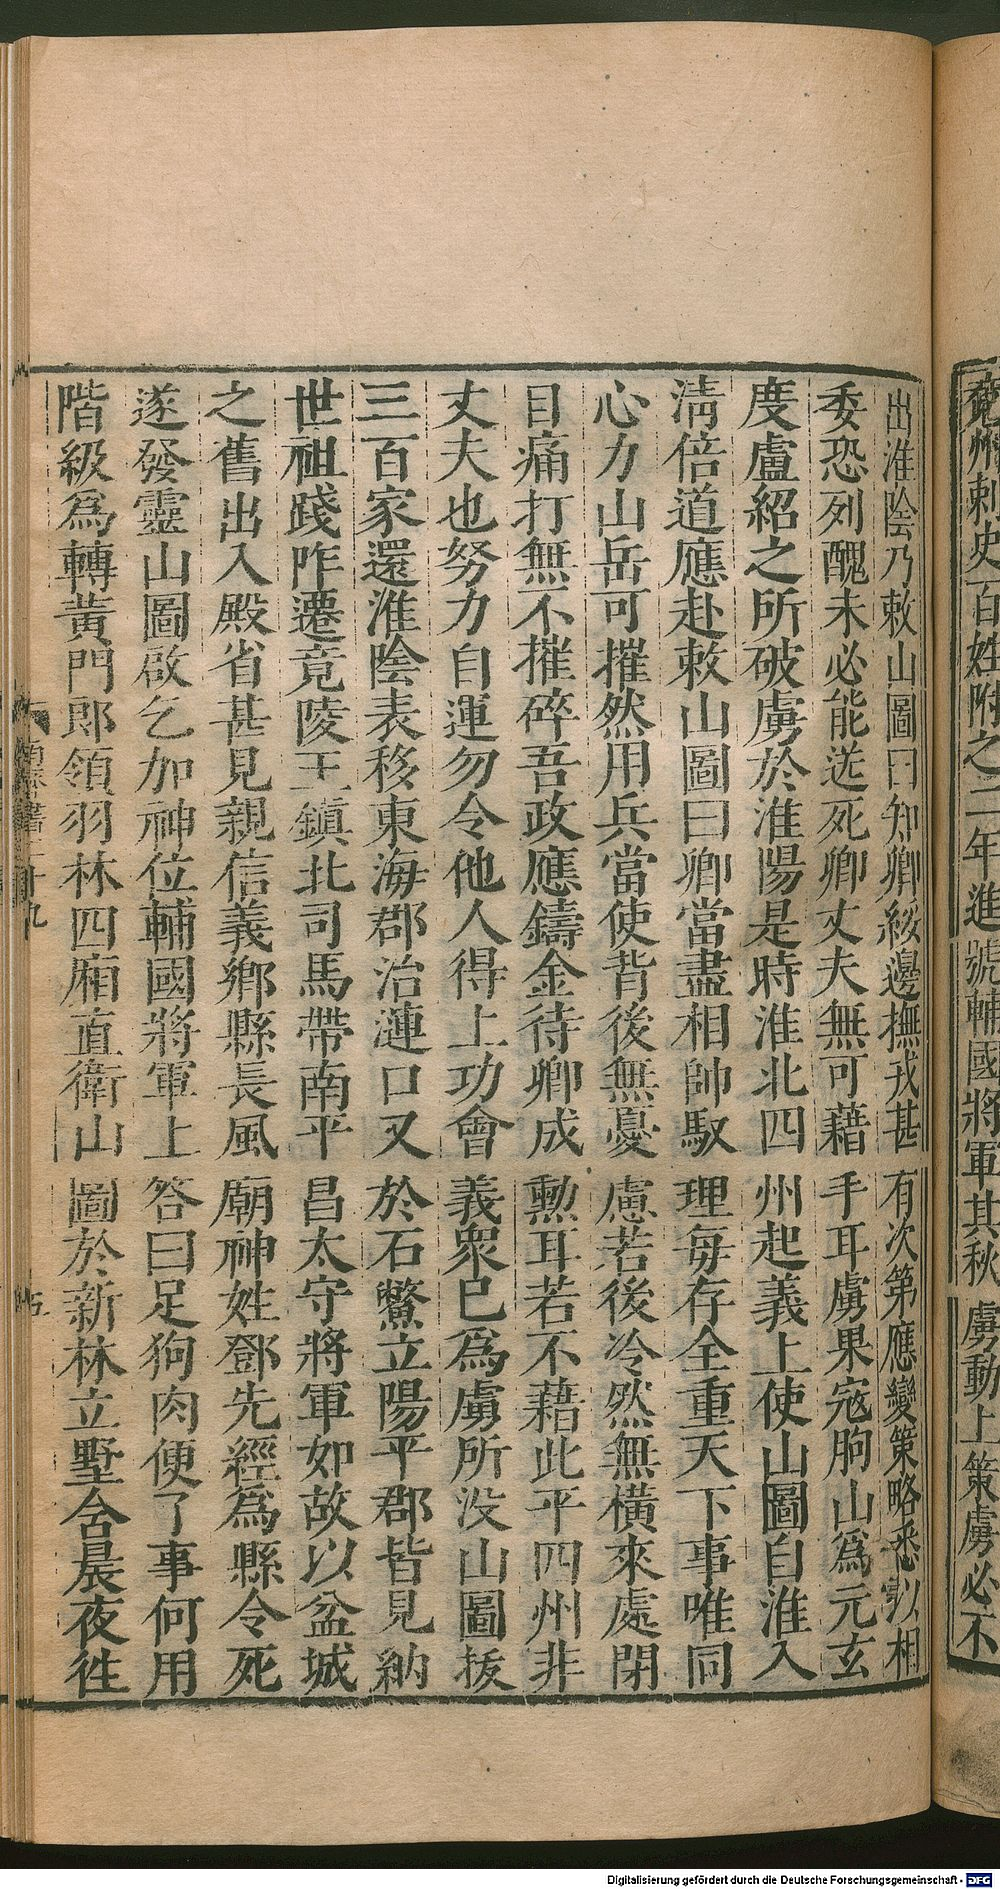 兗州刺史百姓附之二年進號輔國將軍其秋虜動上策虜必不
出淮陰乃敕山圖曰知卿綏邊撫戎甚有次第應變策略悉以相
委恐列醜未必能送死卿丈夫無可藉手耳虜果寇朐山爲元玄
度盧紹之所破虜於淮陽是時淮北四州起義上使山圖自淮入
淸倍道應赴敕山圖曰卿當盡相帥馭理每存全重天下事唯同
心力山岳可摧然用兵當使背後無憂慮若後冷然無橫來處閉
目痛打無不摧碎吾政應鑄金待卿成勳耳若不藉此平四州非
丈夫也努力自運勿令他人得上功會義衆已爲虜所没山圖拔
三百家還淮陰表移東海郡治漣口又於石鱉立陽平郡皆見納
世祖踐咋遷竟陵王鎮北司馬帶南平昌太守將軍如故以盆城
之舊出入殿省甚見親信義鄉縣長風廟神姓鄧先經爲縣令死
遂發靈山圖啟乞加神位輔國將軍上答曰足狗肉便了事何用
階級爲轉黃門郎領羽林四廂直衛山圖於新林立墅舍晨夜徃
南齊書二十九
五
Digitalisierung gefördert durch die Deutsche Forschungsgemeinschaft - DFG